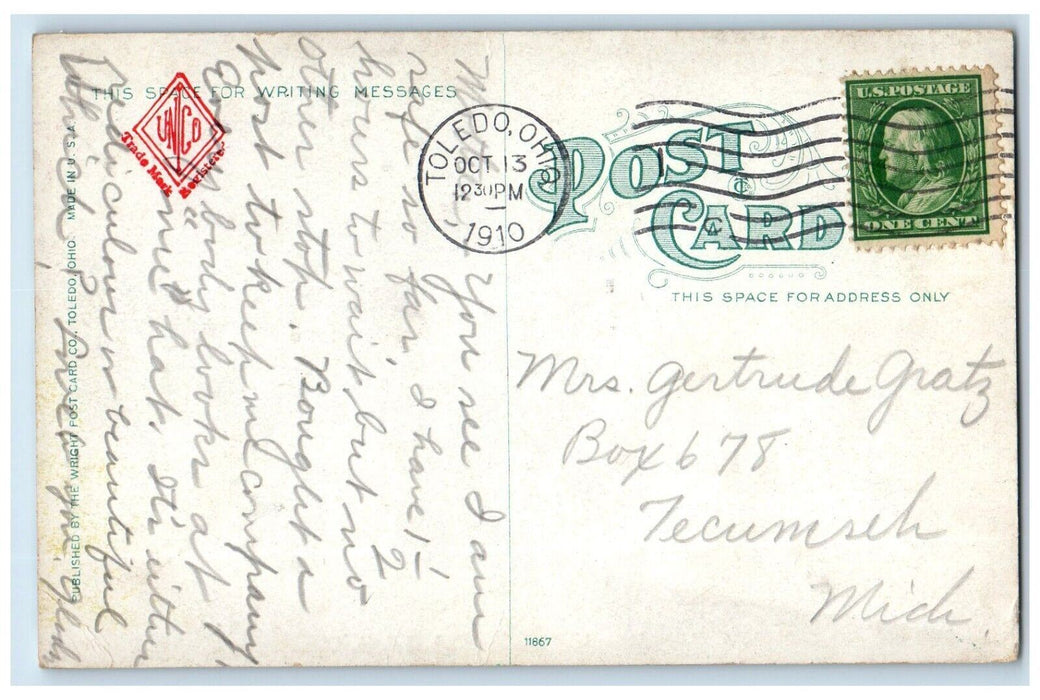 THIS SPACE FOR WRITING MESSAGES
UNICO
Trade Mark Registered
PUBLISHED BY THE WRIGHT POST CARD CO., TOLEDO, OHIO. MADE IN U. S. A.
You see I am
safe so far, I have 1-
hours to wait, but no 2
other stop. Bought a
post to keep me company,
Every body looks at
"me" hat, Its either
rediculous or beautiful
Which? love you.
TOLEDO, OHIO
OCT 13
12 30 PM
1910
U.S. POSTAGE
ONE CENT
POST CARD
THIS SPACE FOR ADDRESS ONLY
Mrs. Gertrude Gratz
Box 678
Tecumseh
Mich.
11867